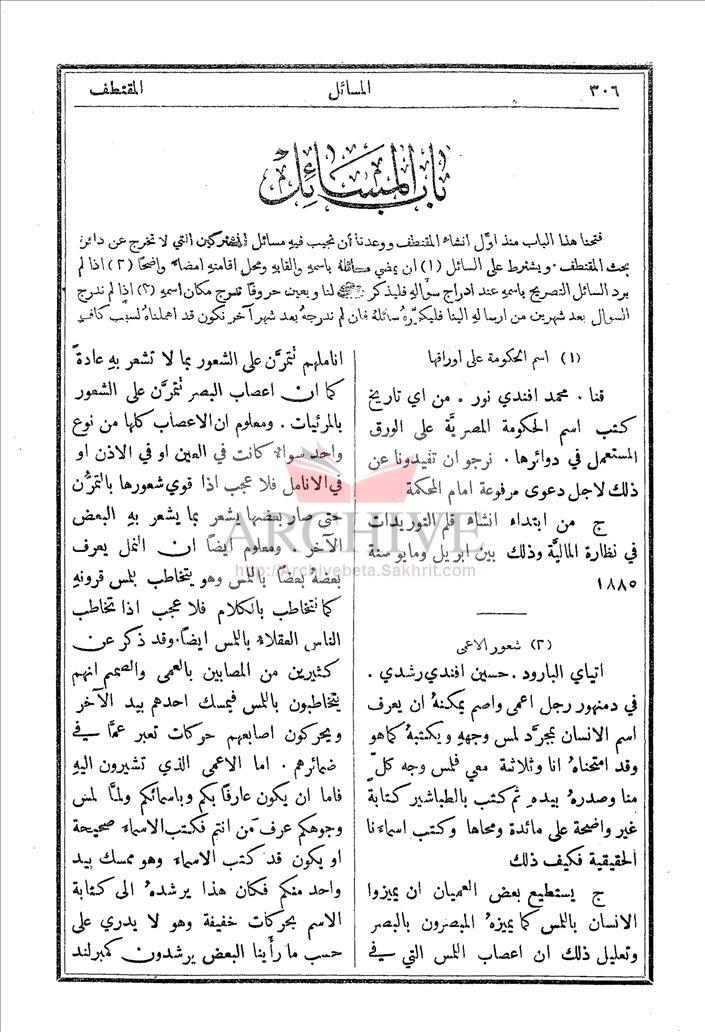 ٣٠٦ المسائل المقتطف
باب المسائل
فتحنا هذا الباب منذ اوّل انشاء المقتطف ووعدنا أن نجيب فيهِ مسائل المشتركين التي لا تخرج عن دائرة
بحث المقتطف . ويشترط على السائل (١) ان يمضي مسائلهُ باسمهِ والقابهِ ومحل اقامتهِ امضاءً واضحًا (٢) اذا لم
يرد السائل التصريح باسمهِ عند ادراج سؤالهِ فليذكر ذلك لنا ويعين حروفًا تدرج مكان اسمهِ (٣) اذا لم ندرج
السوال بعد شهرين من ارسالهِ الينا فليكرّرهُ سائلهُ فان لم ندرجهُ بعد شهر آخر نكون قد اهملناهُ لسبب كافٍ
(١) اسم الحكومة على اوراقها
قنا . محمد افندي نور . من اي تاريخ
كتب اسم الحكومة المصريَّة على الورق
المستعمل في دوائرها . نرجو ان تفيدونا عن
ذلك لاجل دعوى مرفوعة امام المحكمة
ج من ابتداء انشاء قلم التوريدات
في نظارة الماليَّة وذلك بين ابريل ومايو سنة
١٨٨٥
(٢) شعور الاعمى
اتياي البارود . حسين افندي رشدي .
في دمنهور رجل اعمى واصم يمكنهُ ان يعرف
اسم الانسان بمجرَّد لمس وجههِ ويكتبهُ كما هو
وقد امتحناهُ انا وثلاثة معي فلمس وجه كلٍّ
منا وصدرهُ بيدهِ ثم كتب بالطباشير كتابة
غير واضحة على مائدة ومحاها وكتب اسماءنا
الحقيقية فكيف ذلك
ج يستطيع بعض العميان ان يميزوا
الانسان باللمس كما يميزهُ المبصرون بالبصر
وتعليل ذلك ان اعصاب اللمس التي في
اناملهم تتمرَّن على الشعور بما لا تشعر بهِ عادةً
كما ان اعصاب البصر تتمرَّن على الشعور
بالمرئيات . ومعلوم ان الاعصاب كلها من نوع
واحد سوائه كانت في العين او في الاذن او
في الانامل فلا عجب اذا قوي شعورها بالتمرُّن
حتى صار بعضها يشعر بما يشعر بهِ البعض
الآخر . ومعلوم ايضًا ان النمل يعرف
بعضهُ بعضًا باللمس وهو يتخاطب بلمس قرونهِ
كما نتخاطب بالكلام فلا عجب اذا تخاطب
الناس العقلاء باللمس ايضًا . وقد ذكر عن
كثيرين من المصابين بالعمى والصمم انهم
يتخاطبون باللمس فيمسك احدهم بيد الآخر
ويحركون اصابعهم حركات تعبر عمَّا في
ضمائرهم . اما الاعمى الذي تشيرون اليهِ
فاما ان يكون عارفًا بكم وباسمائكم ولمَّا لمس
وجوهكم عرف من انتم فكتب الاسماء صحيحة
او يكون قد كتب الاسماء وهو ممسك بيد
واحد منكم فكان هذا يرشدهُ الى كتابة
الاسم بحركات خفيفة وهو لا يدري على
حسب ما رأينا البعض يرشدون كمبرلند
ARCHIVE
http://Archivebeta.Sakhrit.com